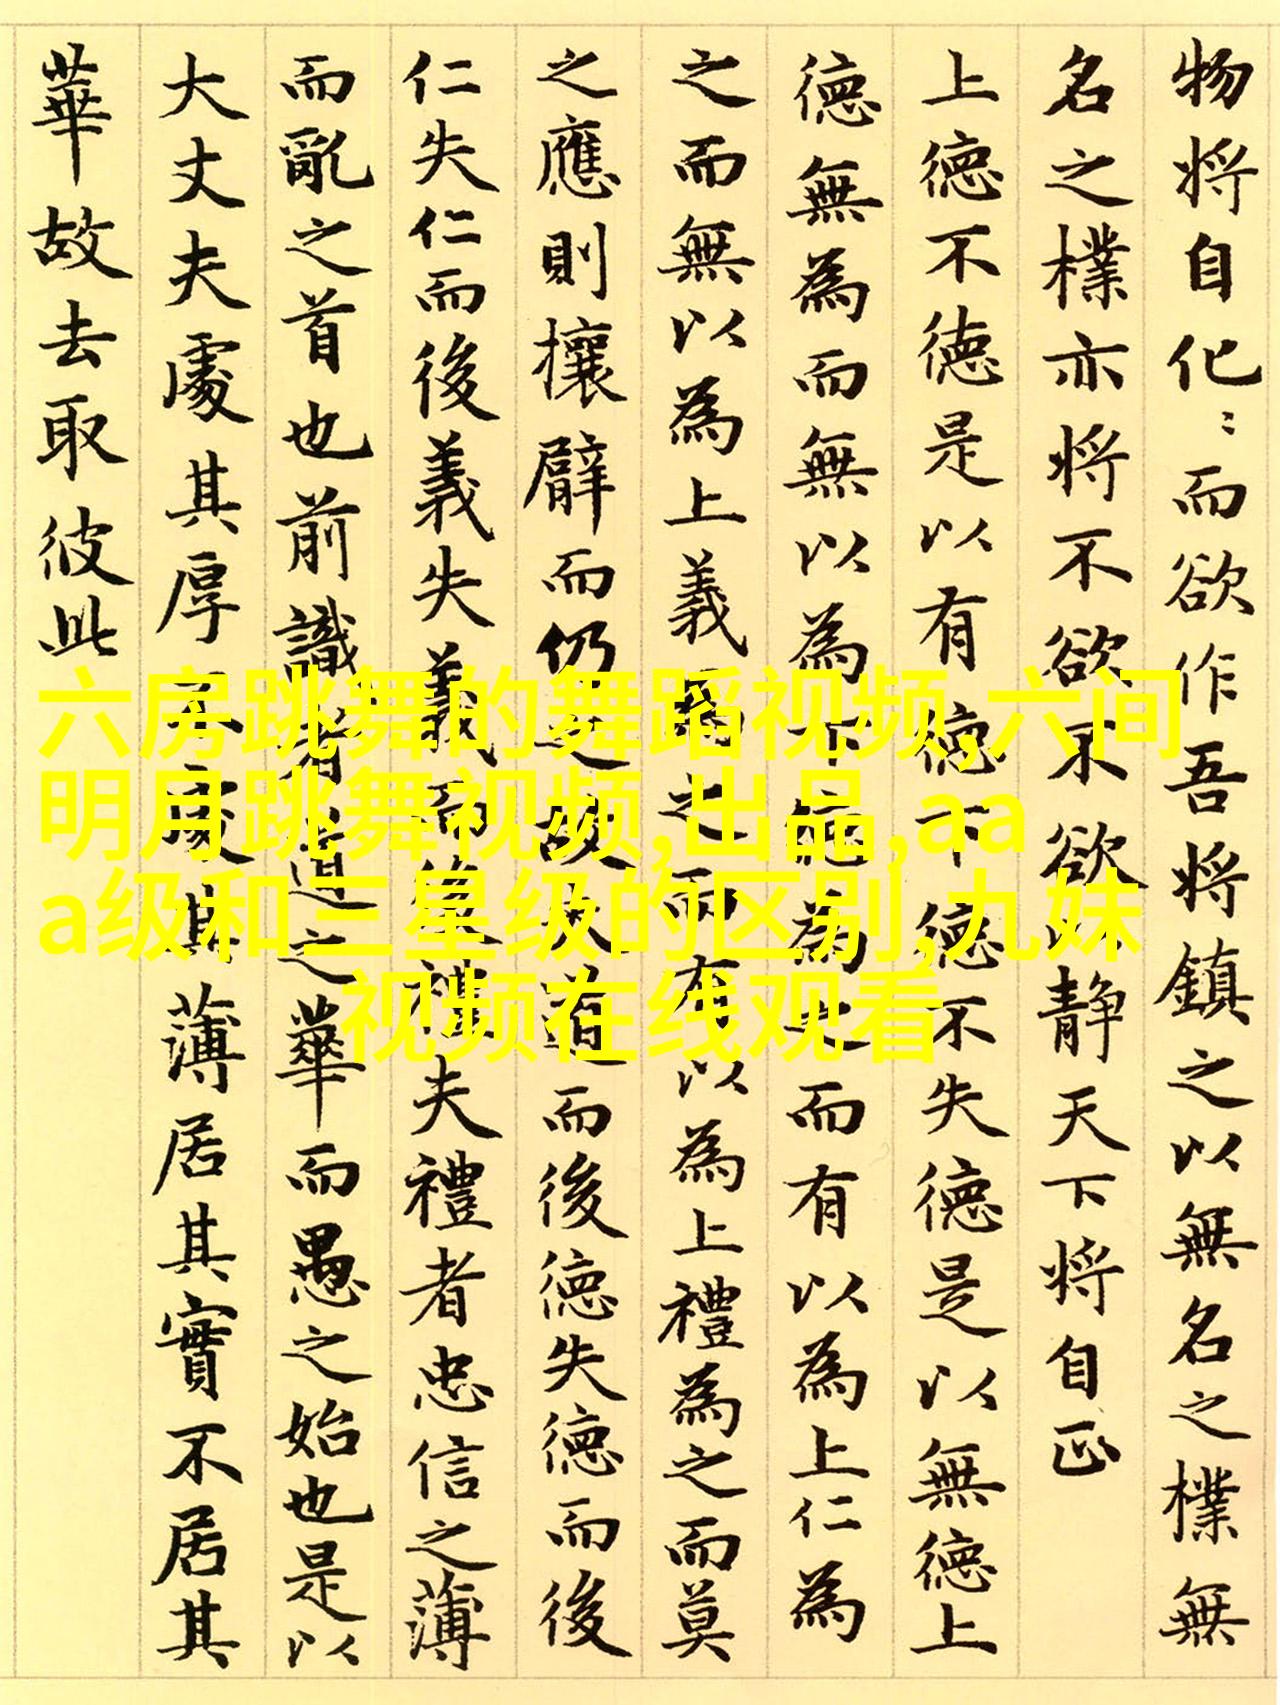 物将自化〻而欲作吾将鎮之以無名之樸無
名之樸亦将不欲不欲以静天下将自正
上德不德是以有德下德不失德是以無德上
德無為而無以為下德為之而有以為上仁為
之而無以為上義為之而有以為上禮為之而莫
之應則攘臂而仍之故失道而後德失德而後
仁失仁而後義失義而後禮夫禮者忠信之薄
而亂之首也前識者道之華而愚之始也是以
大丈夫處其厚不處其薄居其實不居其
華故去取彼此
六房跳舞的舞蹈视频,六间
明月跳舞视频,出品,aa
a级和三星级的区别,九妹
视频在线观看